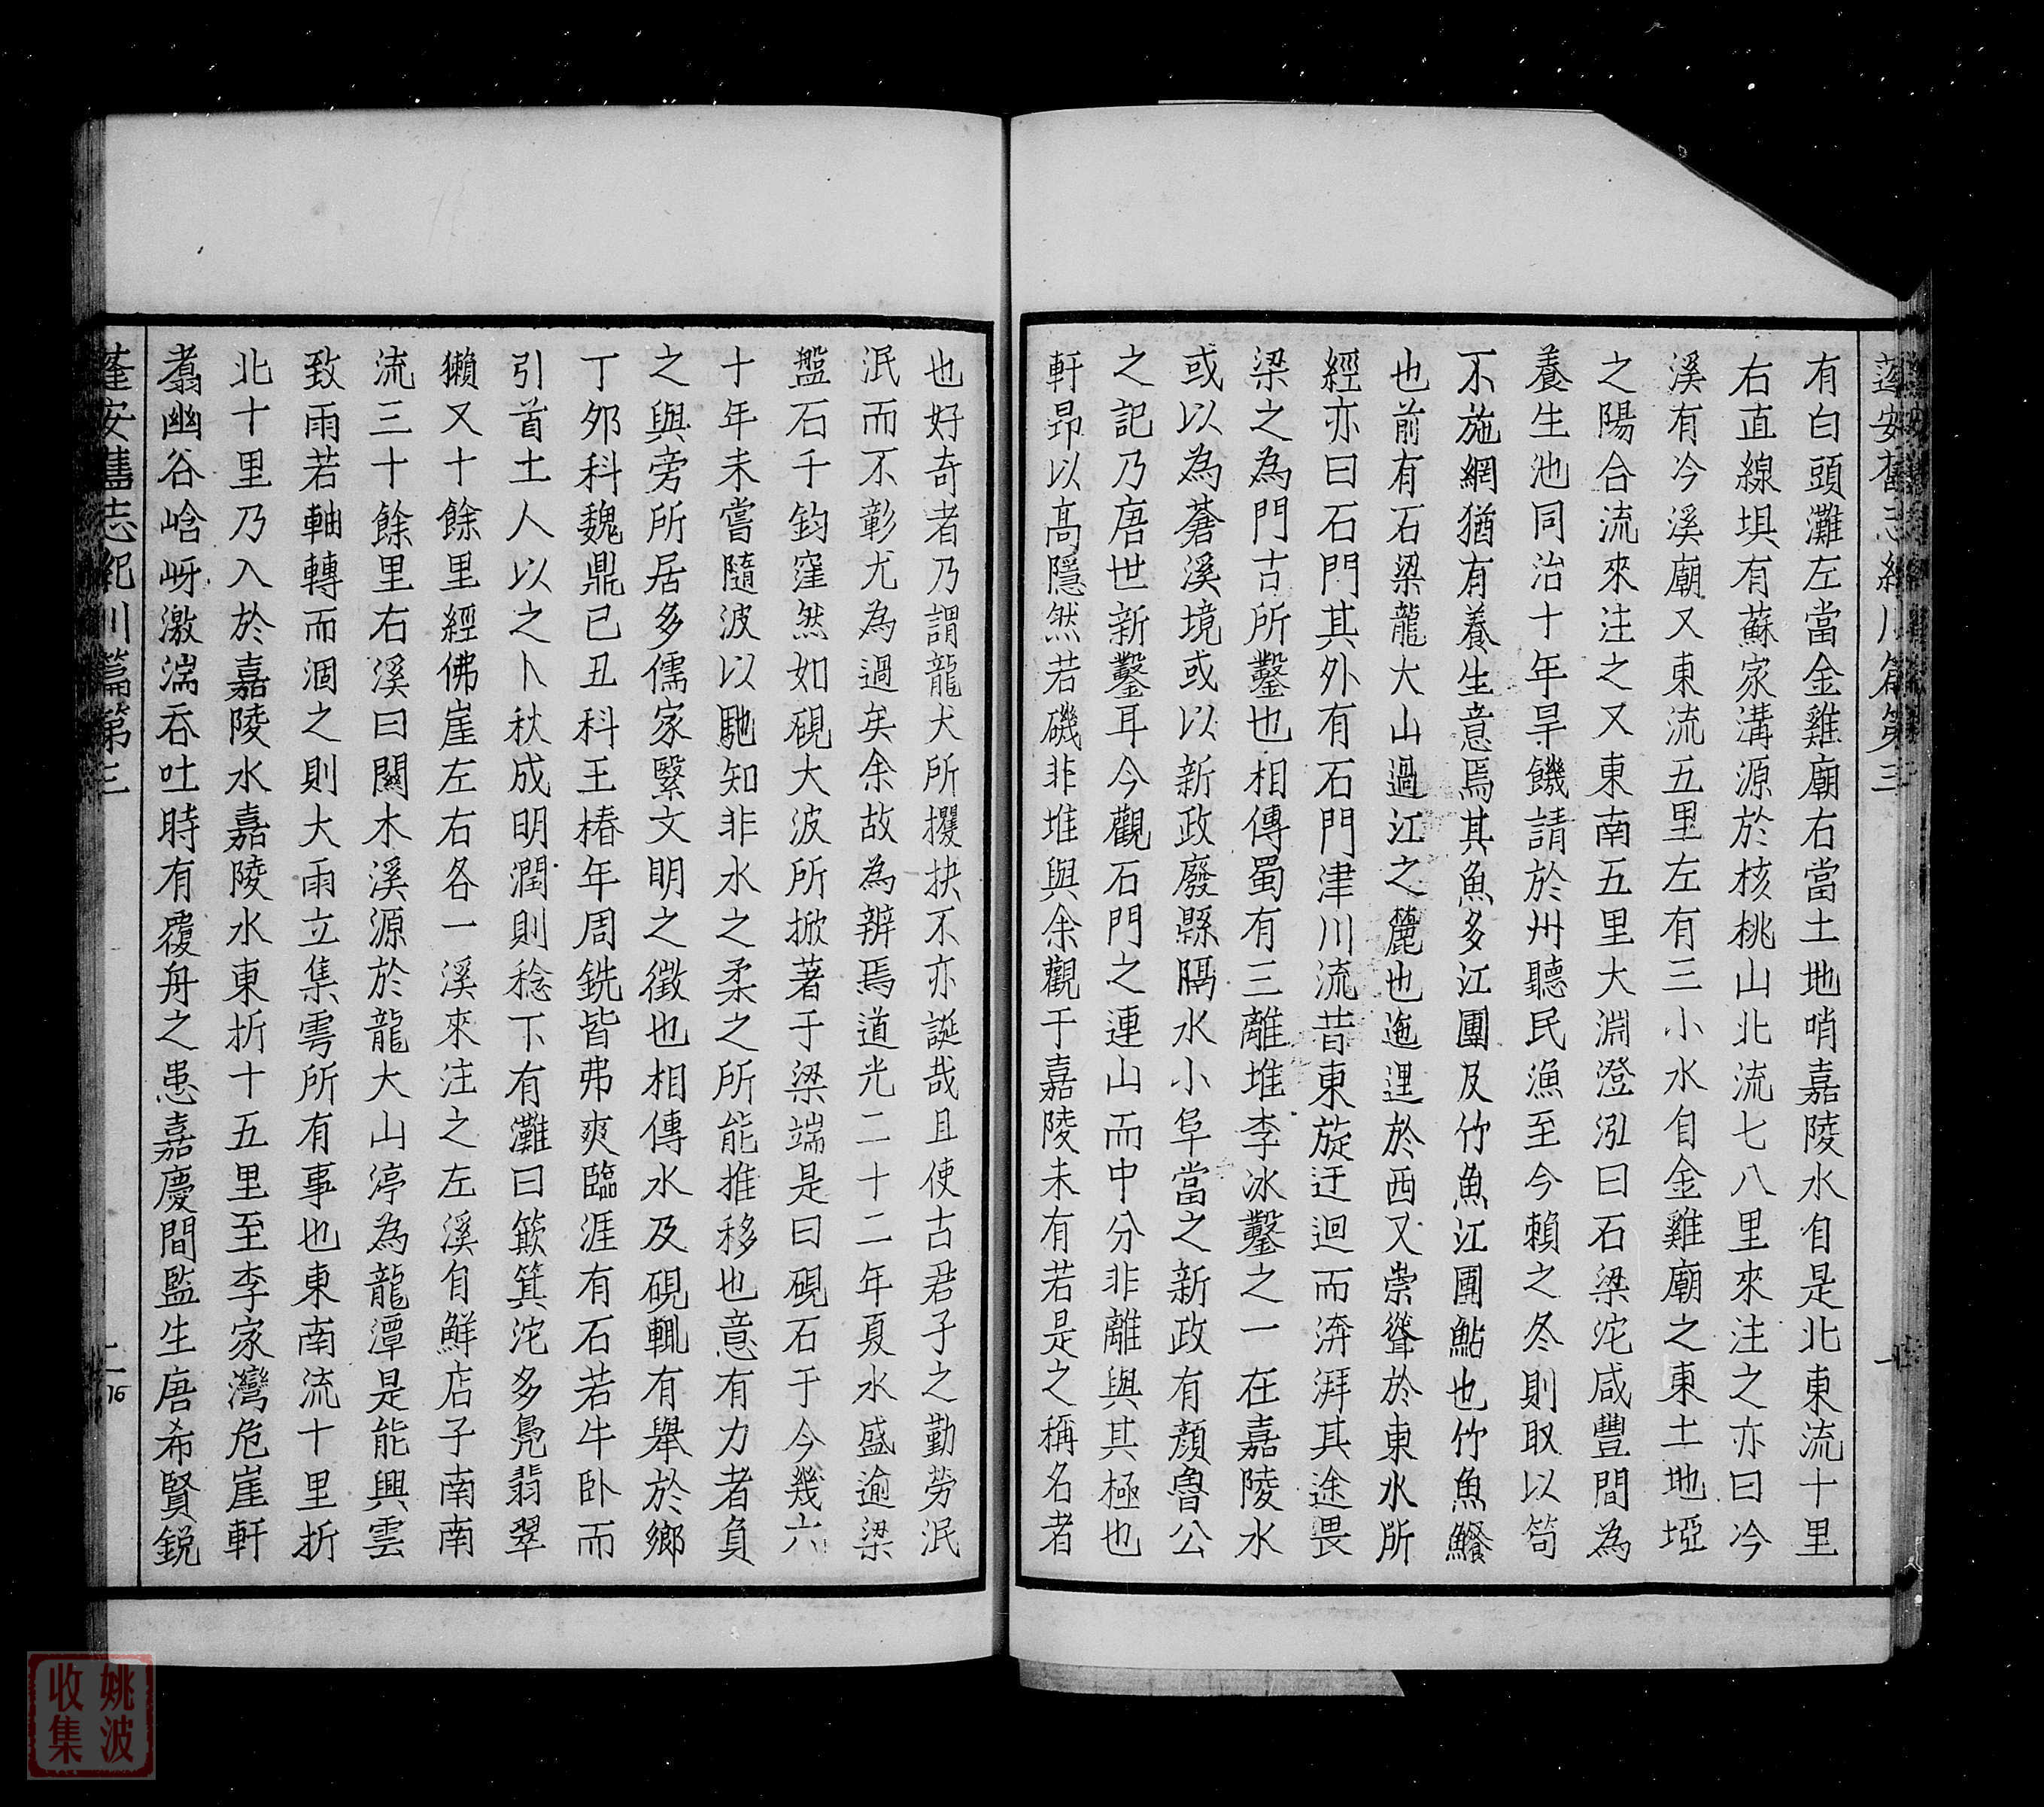 蓬安舊志紀川篇第三
有白頭灘左當金雞廟右當土地哨嘉陵水自是北東流十里
右直線埧有蘇家溝源於核桃山北流七八里來注之亦曰冷
溪有冷溪廟又東流五里左有三小水自金雞廟之東土地埡
之陽合流來注之又東南五里大淵澄泓曰石梁沱咸豐間為
養生池同治十年旱饑請於州聽民漁至今賴之冬則取以笱
不施網猶有養生意焉其魚多江團及竹魚江團鮎也竹魚鱶
也前有石梁龍大山過江之麓也迤邐於西又崇聳於東水所
經亦曰石門其外有石門津川流昔東旋迂迴而洊湃其途畏
梁之為門古所鑿也相傳蜀有三離堆李冰鑿之一在嘉陵水
或以為蒼溪境或以新政廢縣隔水小阜當之新政有顏魯公
之記乃唐世新鑿耳今觀石門之連山而中分非離與其極也
軒昂以高隱然若磯非堆與余觀于嘉陵未有若是之稱名者
也好奇者乃謂龍犬所攫抉不亦誕哉且使古君子之勤勞泯
泯而不彰尤為過矣余故為辨焉道光二十二年夏水盛逾梁
盤石千鈞窪然如硯大波所掀著于梁端是曰硯石于今幾六
十年未嘗隨波以馳知非水之柔之所能推移也意有力者負
之與旁所居多儒家緊文明之徵也相傳水及硯輒有舉於鄉
丁夘科魏鼎已丑科王椿年周銑皆弗爽臨涯有石若牛卧而
引首土人以之卜秋成明潤則稔下有灘曰簸箕沱多鳧翡翠
獺又十餘里經佛崖左右各一溪來注之左溪自鮮店子南南
流三十餘里右溪曰闗木溪源於龍大山渟為龍潭是能興雲
致雨若軸轉而涸之則大雨立集雩所有事也東南流十里折
北十里乃入於嘉陵水嘉陵水東折十五里至李家灣危崖軒
翥幽谷峆岈激湍吞吐時有覆舟之患嘉慶間監生唐希賢銳
蓬安舊志紀川篇第三
二
16
姚波
收集